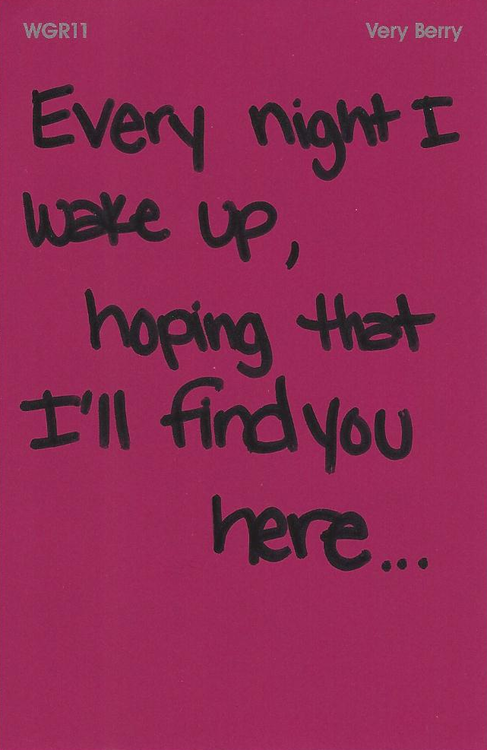 WGR11 Very Berry
Every night I
wake up,
hoping that
I'll find you
here...